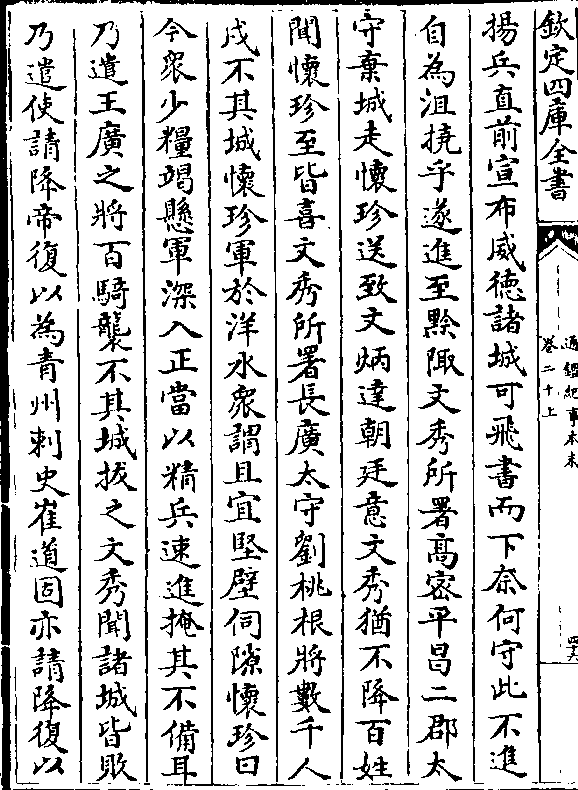 欽定四庫全書
通鑑紀事本末
卷二十上
四六
揚兵直前宣布威德諸城可飛書而下奈何守此不進
自為沮撓乎遂進至黔陬文秀所署高密平昌二郡太
守棄城走懷珍送致文炳達朝廷意文秀猶不降百姓
聞懷珍至皆喜文秀所署長廣太守劉桃根將數千人
戍不其城懷珍軍於洋水衆謂且宜堅壁伺隙懷珍曰
今衆少糧竭懸軍深入正當以精兵速進掩其不備耳
乃遣王廣之將百騎襲不其城拔之文秀聞諸城皆敗
乃遣使請降帝復以為青州刺史崔道固亦請降復以